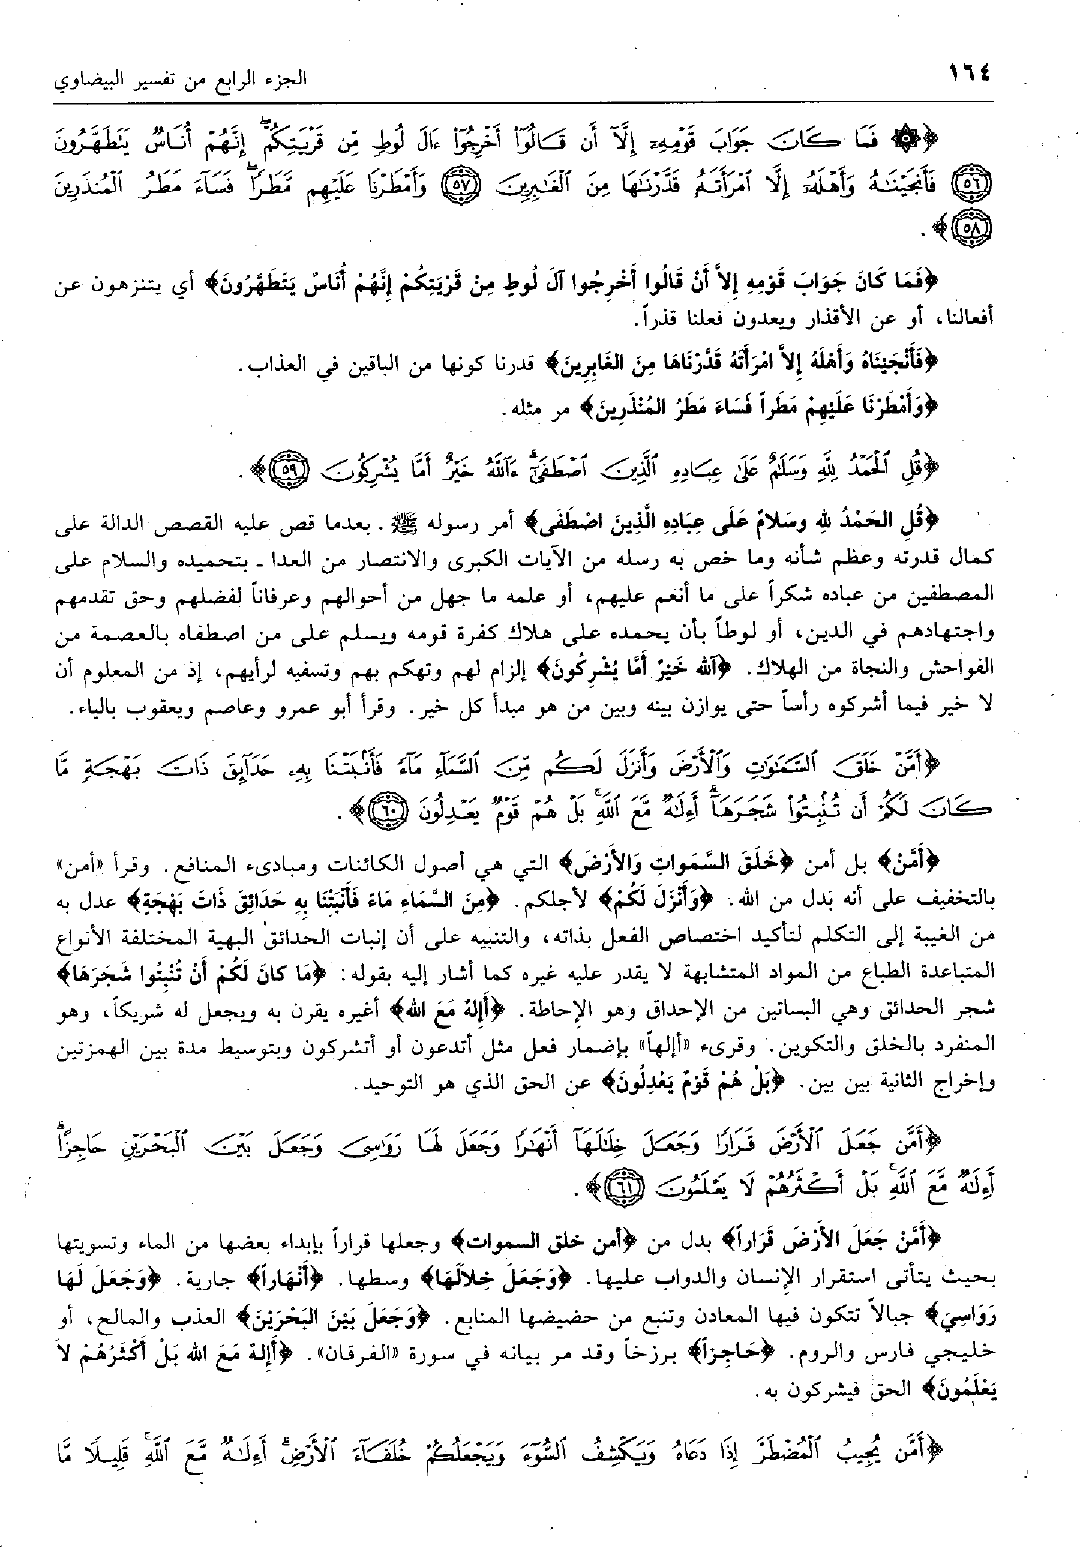 ١٦٤
الجزء الرابع من تفسير البيضاوي
﴿۞ فَمَا كَانَ جَوَابَ قَوْمِهِۦٓ إِلَّآ أَن قَالُوٓا۟ أَخْرِجُوٓا۟ ءَالَ لُوطٍ مِّن قَرْيَتِكُمْ ۖ إِنَّهُمْ أُنَاسٌ يَتَطَهَّرُونَ
٥٦ فَأَنجَيْنَٰهُ وَأَهْلَهُۥٓ إِلَّا ٱمْرَأَتَهُۥ قَدَّرْنَٰهَا مِنَ ٱلْغَٰبِرِينَ ٥٧ وَأَمْطَرْنَا عَلَيْهِم مَّطَرًا ۖ فَسَآءَ مَطَرُ ٱلْمُنذَرِينَ
٥٨﴾.
﴿فَمَا كَانَ جَوَابَ قَوْمِهِ إِلاَّ أَنْ قَالُوا أَخْرِجُوا آلَ لُوطٍ مِنْ قَرْيَتِكُمْ إِنَّهُمْ أُنَاسٌ يَتَطَهَّرُونَ﴾ أي يتنزهون عن
أفعالنا، أو عن الأقذار ويعدون فعلنا قذراً.
﴿فَأَنْجَيْنَاهُ وَأَهْلَهُ إِلاَّ امْرَأَتَهُ قَدَّرْنَاهَا مِنَ الغَابِرِينَ﴾ قدرنا كونها من الباقين في العذاب.
﴿وَأَمْطَرْنَا عَلَيْهِمْ مَطَراً فَسَاءَ مَطَرُ المُنْذَرِينَ﴾ مر مثله.
﴿قُلِ ٱلْحَمْدُ لِلَّهِ وَسَلَٰمٌ عَلَىٰ عِبَادِهِ ٱلَّذِينَ ٱصْطَفَىٰٓ ۗ ءَآللَّهُ خَيْرٌ أَمَّا يُشْرِكُونَ ٥٩﴾.
﴿قُلِ الحَمْدُ للهِ وسَلامٌ عَلَى عِبَادِهِ الَّذِينَ اصْطَفَى﴾ أمر رسوله ﷺ. بعدما قص عليه القصص الدالة على
كمال قدرته وعظم شأنه وما خص به رسله من الآيات الكبرى والانتصار من العدا ـ بتحميده والسلام على
المصطفين من عباده شكراً على ما أنعم عليهم، أو علمه ما جهل من أحوالهم وعرفاناً لفضلهم وحق تقدمهم
واجتهادهم في الدين، أو لوطاً بأن يحمده على هلاك كفرة قومه ويسلم على من اصطفاه بالعصمة من
الفواحش والنجاة من الهلاك. ﴿آلله خَيْرٌ أَمَّا يُشْرِكُونَ﴾ إلزام لهم وتهكم بهم وتسفيه لرأيهم، إذ من المعلوم أن
لا خير فيما أشركوه رأساً حتى يوازن بينه وبين من هو مبدأ كل خير. وقرأ أبو عمرو وعاصم ويعقوب بالياء.
﴿أَمَّنْ خَلَقَ ٱلسَّمَٰوَٰتِ وَٱلْأَرْضَ وَأَنزَلَ لَكُم مِّنَ ٱلسَّمَآءِ مَآءً فَأَنۢبَتْنَا بِهِۦ حَدَآئِقَ ذَاتَ بَهْجَةٍ مَّا
كَانَ لَكُمْ أَن تُنۢبِتُوا۟ شَجَرَهَآ ۗ أَءِلَٰهٌ مَّعَ ٱللَّهِ ۚ بَلْ هُمْ قَوْمٌ يَعْدِلُونَ ٦٠﴾.
﴿أَمَّنْ﴾ بل أمن ﴿خَلَقَ السَّمَواتِ وَالأَرْضَ﴾ التي هي أصول الكائنات ومبادىء المنافع. وقرأ «أمن»
بالتخفيف على أنه بدل من الله. ﴿وَأَنْزَلَ لَكُمْ﴾ لأجلكم. ﴿مِنَ السَّمَاءِ مَاءً فَأَنْبَتْنَا بِهِ حَدَائِقَ ذَاتَ بَهْجَةٍ﴾ عدل به
من الغيبة إلى التكلم لتأكيد اختصاص الفعل بذاته، والتنبيه على أن إنبات الحدائق البهية المختلفة الأنواع
المتباعدة الطباع من المواد المتشابهة لا يقدر عليه غيره كما أشار إليه بقوله: ﴿مَا كانَ لَكُمْ أَنْ تُنْبِتُوا شَجَرَهَا﴾
شجر الحدائق وهي البساتين من الإحداق وهو الإحاطة. ﴿أَإِلهٌ مَعَ الله﴾ أغيره يقرن به ويجعل له شريكاً، وهو
المنفرد بالخلق والتكوين. وقرىء «أإلهاً» بإضمار فعل مثل أتدعون أو أتشركون وبتوسيط مدة بين الهمزتين
وإخراج الثانية بين بين. ﴿بَلْ هُمْ قَوْمٌ يَعْدِلُونَ﴾ عن الحق الذي هو التوحيد.
﴿أَمَّن جَعَلَ ٱلْأَرْضَ قَرَارًا وَجَعَلَ خِلَٰلَهَآ أَنْهَٰرًا وَجَعَلَ لَهَا رَوَٰسِىَ وَجَعَلَ بَيْنَ ٱلْبَحْرَيْنِ حَاجِزًا ۗ
أَءِلَٰهٌ مَّعَ ٱللَّهِ ۚ بَلْ أَكْثَرُهُمْ لَا يَعْلَمُونَ ٦١﴾.
﴿أَمَّنْ جَعَلَ الأَرْضَ قَرَاراً﴾ بدل من ﴿أمن خلق السموات﴾ وجعلها قراراً بإبداء بعضها من الماء وتسويتها
بحيث يتأتى استقرار الإنسان والدواب عليها. ﴿وَجَعَلَ خِلالَهَا﴾ وسطها. ﴿أَنْهَاراً﴾ جارية. ﴿وَجَعَلَ لَهَا
رَوَاسِيَ﴾ جبالاً تتكون فيها المعادن وتنبع من حضيضها المنابع. ﴿وَجَعَلَ بَيْنَ البَحْرَيْنَ﴾ العذب والمالح، أو
خليجي فارس والروم. ﴿حَاجِزاً﴾ برزخاً وقد مر بيانه في سورة «الفرقان». ﴿أَإِلهٌ مَعَ الله بَلْ أَكْثَرُهُمْ لاَ
يَعْلَمُونَ﴾ الحق فيشركون به.
﴿أَمَّن يُجِيبُ ٱلْمُضْطَرَّ إِذَا دَعَاهُ وَيَكْشِفُ ٱلسُّوٓءَ وَيَجْعَلُكُمْ خُلَفَآءَ ٱلْأَرْضِ ۗ أَءِلَٰهٌ مَّعَ ٱللَّهِ ۚ قَلِيلًا مَّا